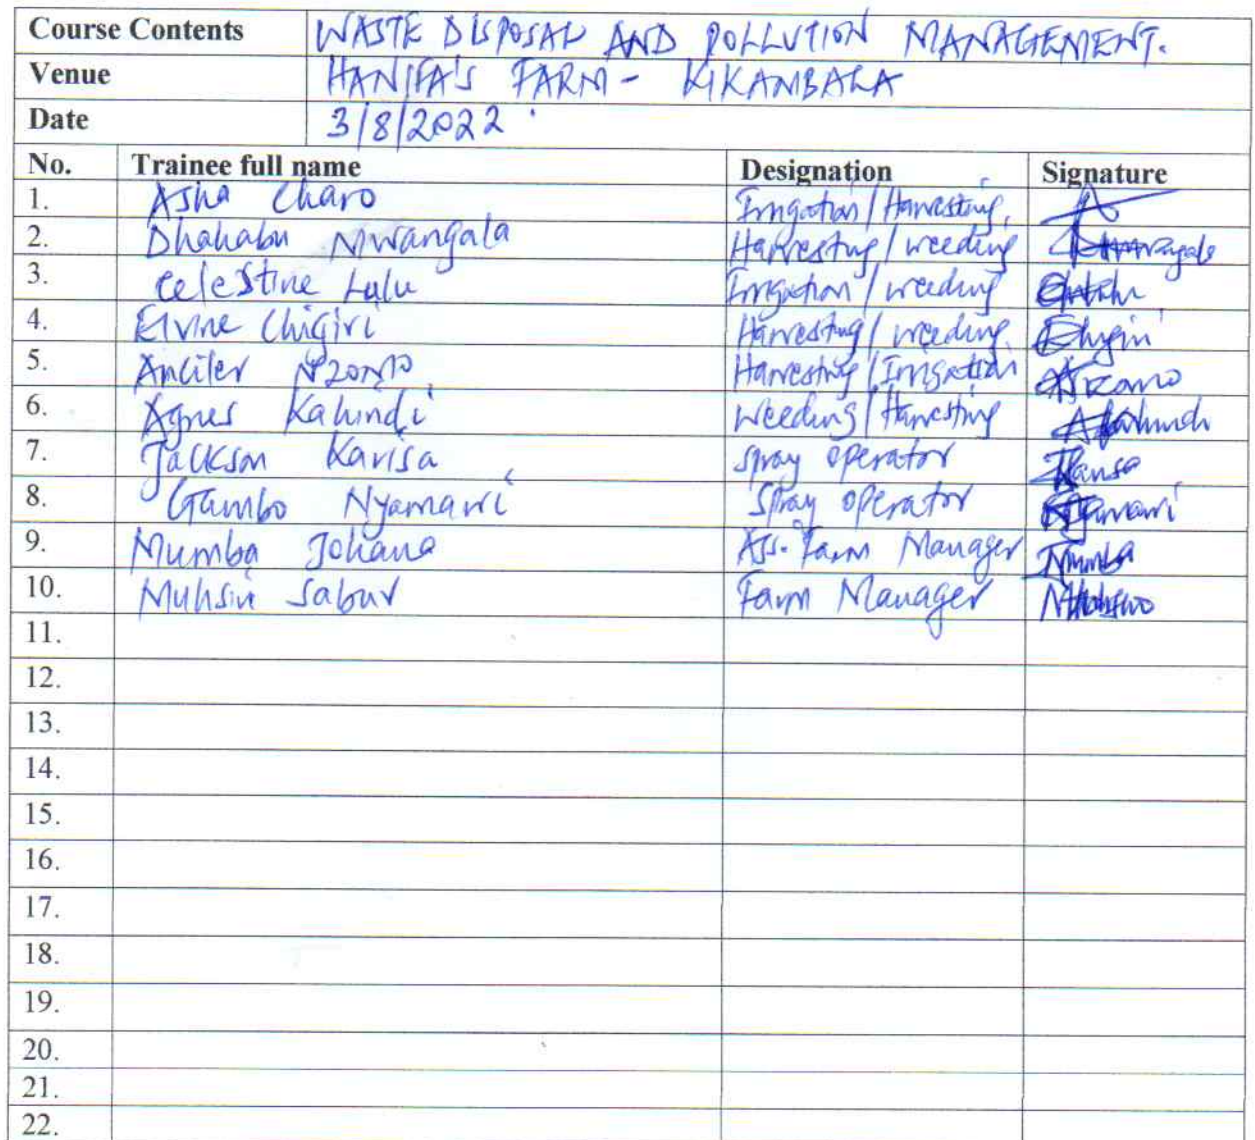 Course Contents WASTE DISPOSAL AND POLLUTION MANAGEMENT.
Venue HANIFA'S FARM - KIKAMBALA
Date 3/8/2022
No. Trainee full name Designation Signature
1. Asha Charo Irrigation/Harvesting,
2. Dhahabu Mwangala Harvesting/weeding
3. Celestine Lulu Irrigation/weeding
4. Elvine Chigiri Harvesting/weeding
5. Anciler Nzomo Harvesting/Irrigation
6. Agnes Kahindi Weeding/Harvesting
7. Jackson Karisa Spray operator
8. Gambo Nyamawi Spray operator Nyamawi
9. Mumba Johana Ass. Farm Manager Mumba
10. Muhsin Sabur Farm Manager
11.
12.
13.
14.
15.
16.
17.
18.
19.
20.
21.
22.